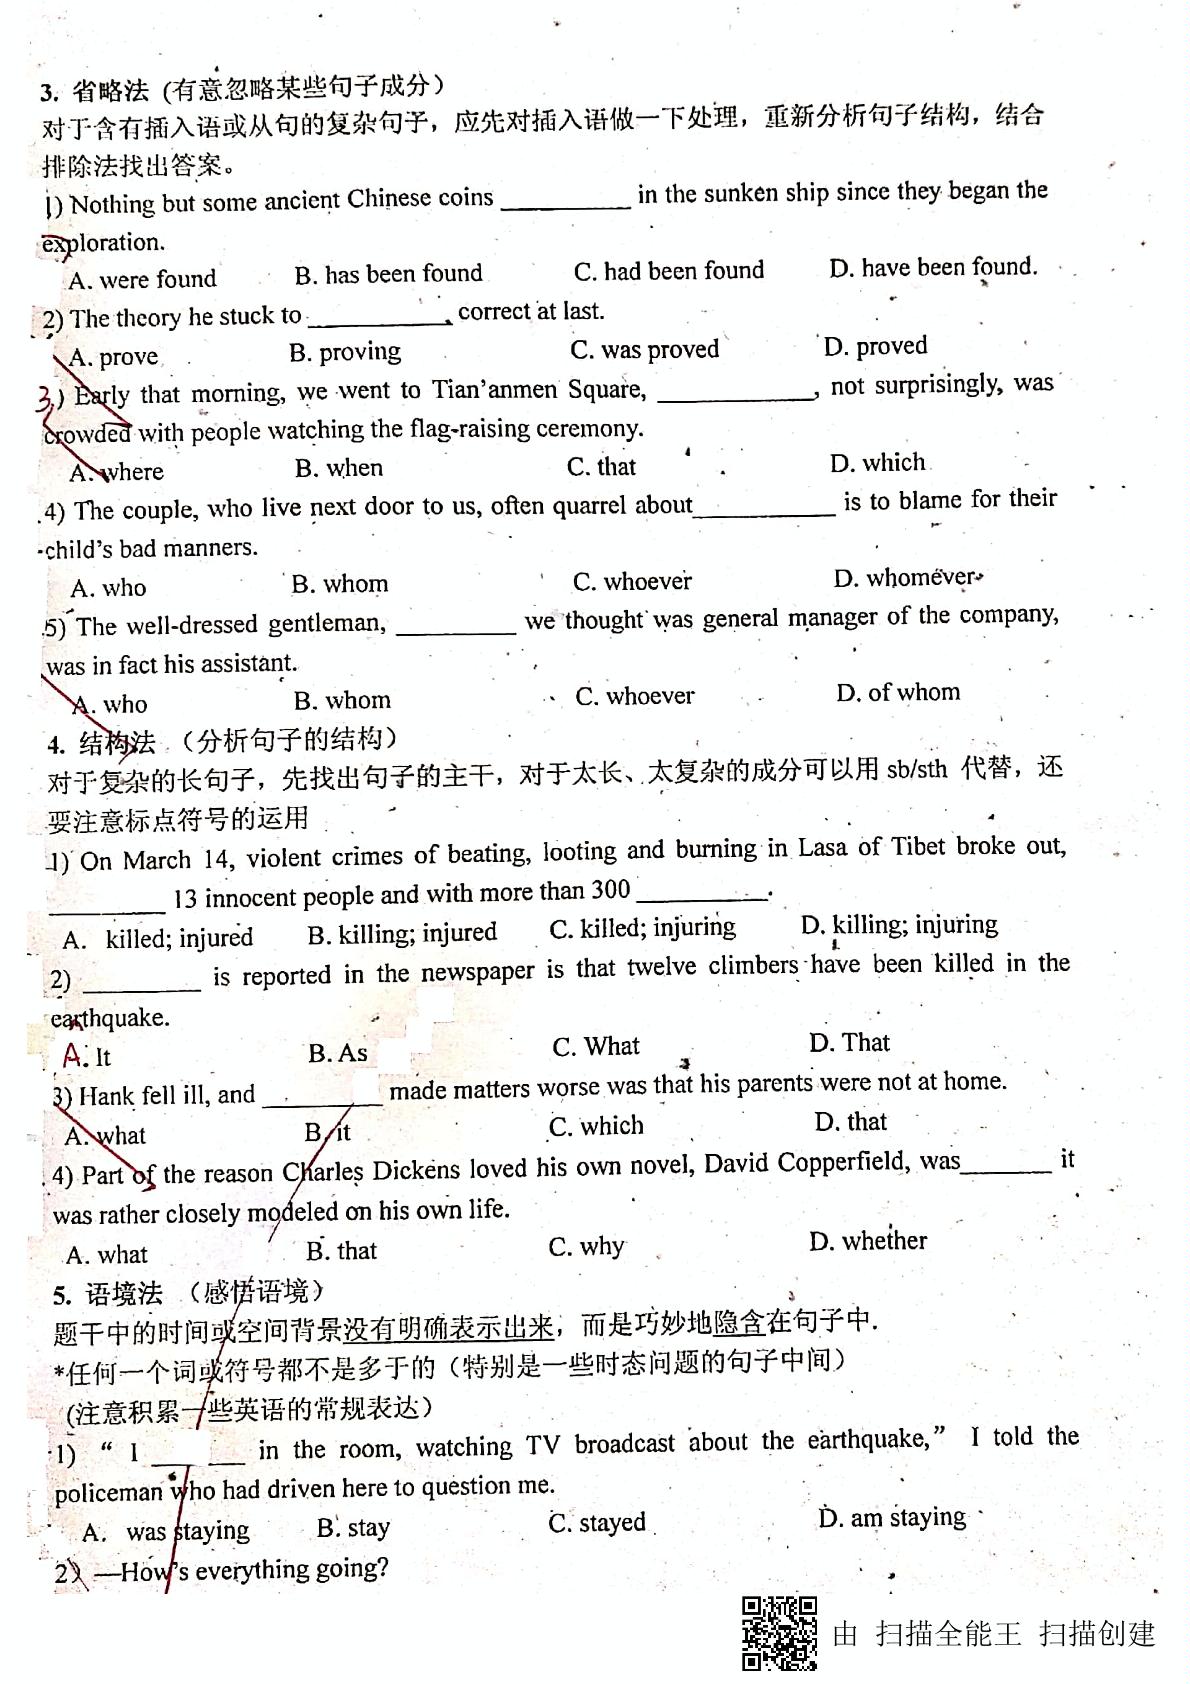 3. 省略法 (有意忽略某些句子成分)
对于含有插入语或从句的复杂句子，应先对插入语做一下处理，重新分析句子结构，结合
排除法找出答案。
1) Nothing but some ancient Chinese coins __________ in the sunken ship since they began the
exploration.
A. were found B. has been found C. had been found D. have been found.
2) The theory he stuck to ___________ correct at last.
A. prove B. proving C. was proved D. proved
3) Early that morning, we went to Tian'anmen Square, ____________, not surprisingly, was
crowded with people watching the flag-raising ceremony.
A. where B. when C. that D. which
4) The couple, who live next door to us, often quarrel about___________ is to blame for their
child's bad manners.
A. who B. whom C. whoever D. whomever
5) The well-dressed gentleman, _________ we thought was general manager of the company,
was in fact his assistant.
A. who B. whom C. whoever D. of whom
4. 结构法 （分析句子的结构）
对于复杂的长句子，先找出句子的主干，对于太长、太复杂的成分可以用 sb/sth 代替，还
要注意标点符号的运用
1) On March 14, violent crimes of beating, looting and burning in Lasa of Tibet broke out,
_________ 13 innocent people and with more than 300 __________.
A. killed; injured B. killing; injured C. killed; injuring D. killing; injuring
2) _________ is reported in the newspaper is that twelve climbers have been killed in the
earthquake.
A. It B. As C. What D. That
3) Hank fell ill, and _________ made matters worse was that his parents were not at home.
A. what B. it C. which D. that
4) Part of the reason Charles Dickens loved his own novel, David Copperfield, was_______ it
was rather closely modeled on his own life.
A. what B. that C. why D. whether
5. 语境法 （感悟语境）
题干中的时间或空间背景没有明确表示出来，而是巧妙地隐含在句子中.
*任何一个词或符号都不是多于的（特别是一些时态问题的句子中间）
(注意积累一些英语的常规表达）
1) “ I _______ in the room, watching TV broadcast about the earthquake,” I told the
policeman who had driven here to question me.
A. was staying B. stay C. stayed D. am staying
2) —How's everything going?
由 扫描全能王 扫描创建